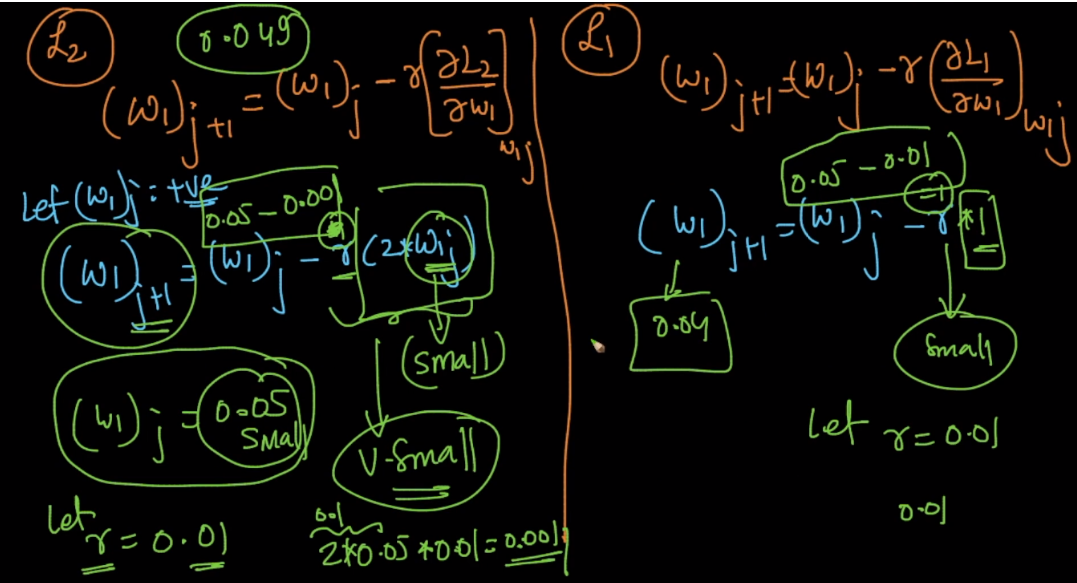 L₂
0.049
(w₁)ⱼ₊₁ = (w₁)ⱼ - r[∂L₂/∂w₁]w₁ⱼ
Let (w₁)ⱼ : +ve
0.05 - 0.001
(w₁)ⱼ₊₁ = (w₁)ⱼ - r(2*w₁ⱼ)
(small)
(w₁)ⱼ = 0.05
SMall
V-Small
Let
r = 0.01
0.1
2*0.05*0.01 = 0.001
L₁
(w₁)ⱼ₊₁ = (w₁)ⱼ - r(∂L₁/∂w₁)w₁ⱼ
0.05 - 0.01
(w₁)ⱼ₊₁ = (w₁)ⱼ - r*1
0.04
Small
Let r = 0.01
0.01